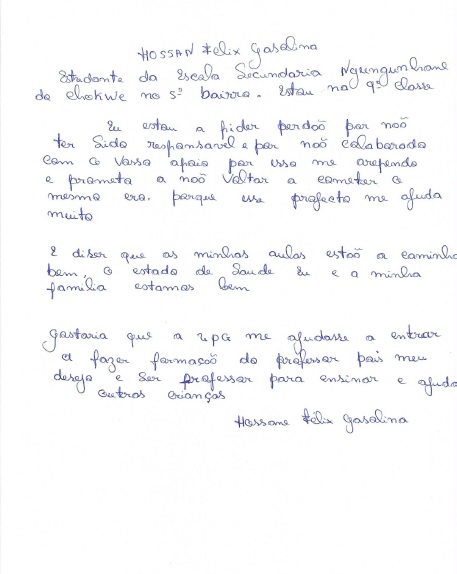 HOSSAN Felix Gasolina
Estudante da Escola Secundaria Ngungunhane
de chokwe no 5º bairro. Estou na 9ª classe
Eu estou a pider perdoõ por noõ
ter Sido responsavel e por noõ colaborado
com o vosso apoio por isso me arependo
e prometo a noõ voltar a cometer o
mesmo ero. porque esse projecto me ajuda
muito
E diser que as minhas aulas estoõ a caminho
bem, o estado de saude Eu e a minha
familia estamos bem
gostaria que a me ajudasse a entrar
a fazer formaçoõ do professor pois meu
desejo e ser professor para ensinar e ajuda
outros crianças
Hossane Felix gasolina